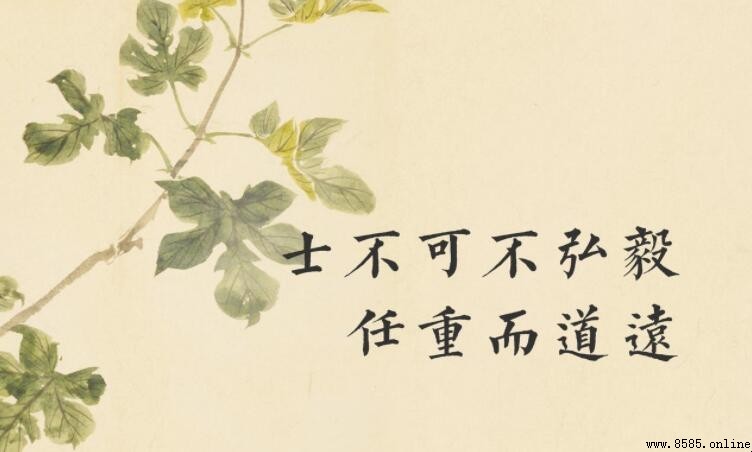 士不可不弘毅
任重而道遠
www.8585.online